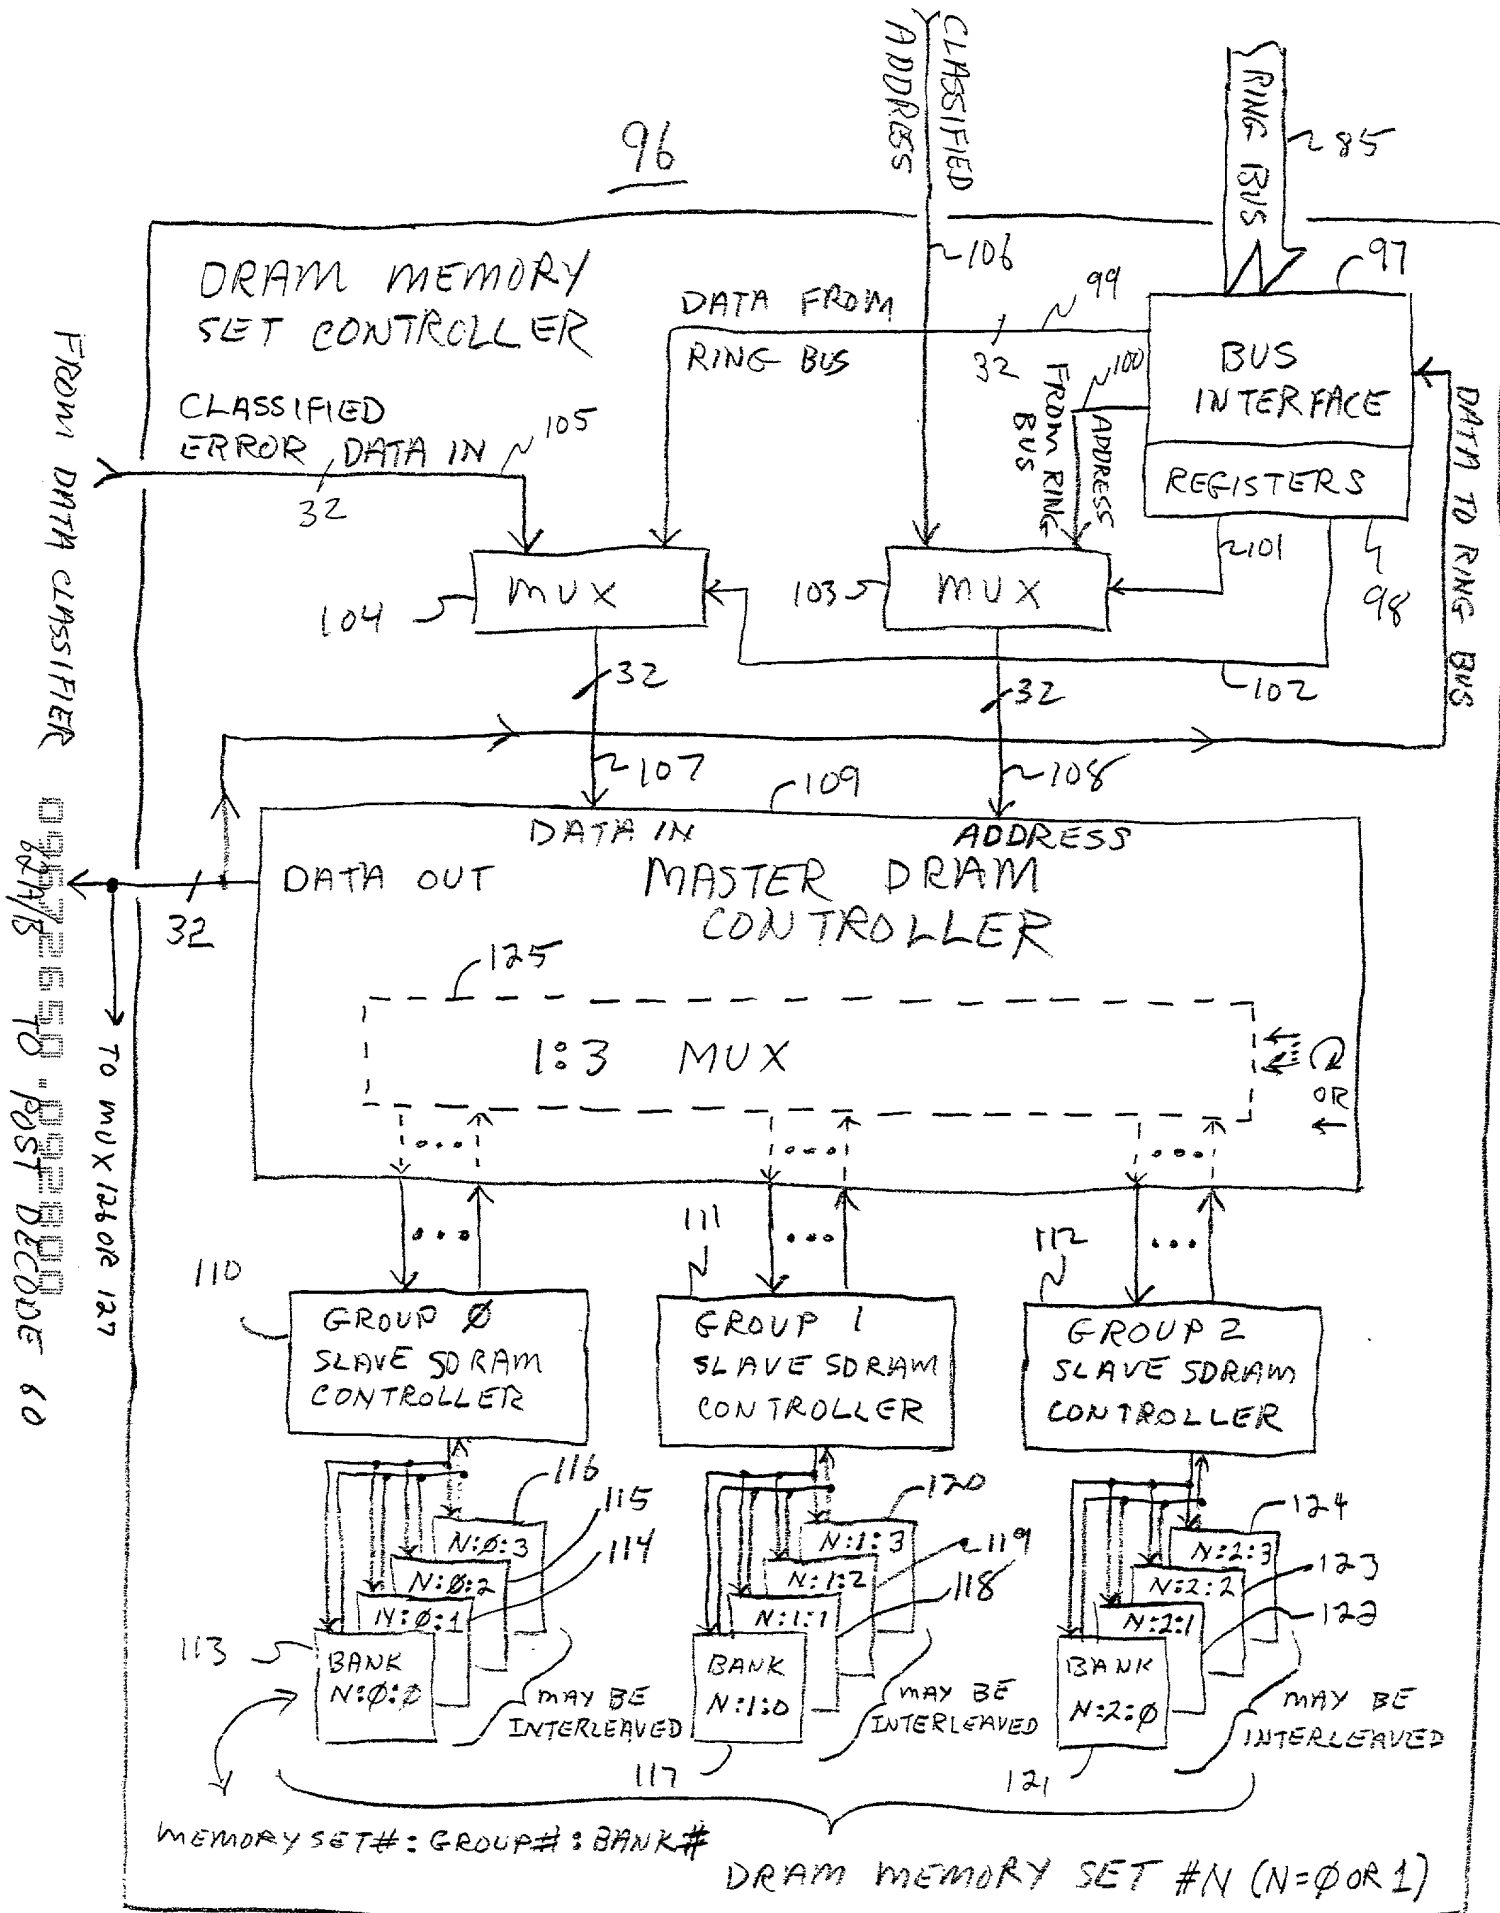 96
CLASSIFIED
ADDRESS
RING BUS
85
DRAM MEMORY
SET CONTROLLER
106
97
DATA FROM
RING BUS
99
32
100
ADDRESS
FROM RING
BUS
BUS
INTERFACE
REGISTERS
DATA TO RING BUS
FROM DATA CLASSIFIER
CLASSIFIED
ERROR DATA IN
105
32
101
98
MUX
104
MUX
103
102
32
32
107
108
109
DATA IN
ADDRESS
DATA OUT
MASTER DRAM
CONTROLLER
32
TO MUX 126 OR 127
TO POST DECODE 60
125
1:3 MUX
OR
110
111
112
GROUP Ø
SLAVE SDRAM
CONTROLLER
GROUP 1
SLAVE SDRAM
CONTROLLER
GROUP 2
SLAVE SDRAM
CONTROLLER
116
115
114
113
N:Ø:3
N:Ø:2
N:Ø:1
BANK
N:Ø:Ø
MAY BE
INTERLEAVED
120
119
118
117
N:1:3
N:1:2
N:1:1
BANK
N:1:0
MAY BE
INTERLEAVED
124
123
122
121
N:2:3
N:2:2
N:2:1
BANK
N:2:Ø
MAY BE
INTERLEAVED
MEMORY SET#:GROUP#:BANK#
DRAM MEMORY SET #N (N=Ø OR 1)